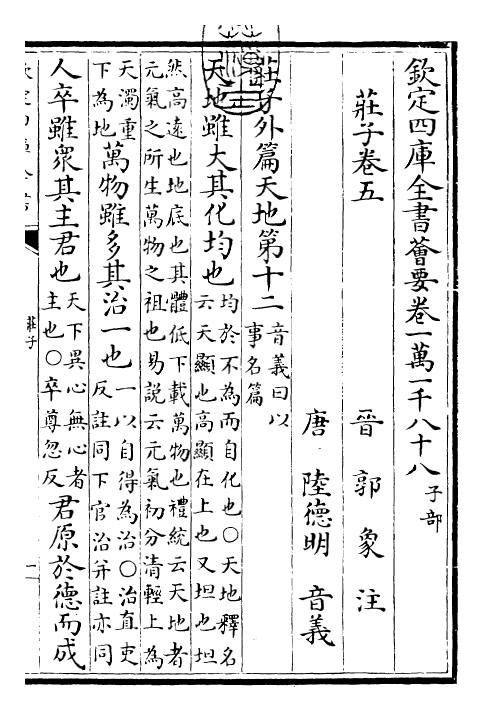 欽定四庫全書薈要卷一萬一千八十八 子部
莊子卷五 晉 郭象 注
唐 陸德明 音義
莊子外篇天地第十二 音義曰以事名篇
天地雖大其化均也 均於不為而自化也○天地釋名云天顯也高顯在上也又坦也坦
然高遠也地底也其體低下載萬物也禮統云天地者元氣之所生萬物之祖也易說云元氣初分清輕上為
天濁重下為地 萬物雖多其治一也 一以自得為治○治直吏反註同下官治并註亦同
人卒雖衆其主君也 天下異心無心者主也○卒尊忽反 君原於德而成
莊子
一